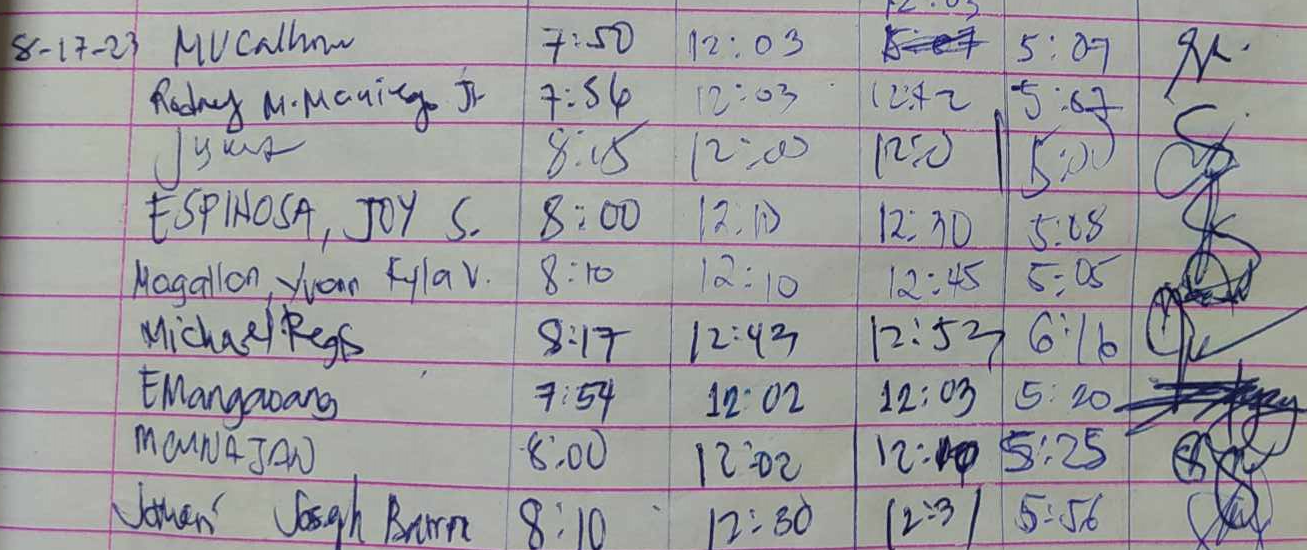 12:03
8-17-23 MVCalhow 7:50 12:03 5:07 5:07
Rodney M. Maniego Jr 7:54 12:03 12:42 5:07
8:05 12:00 5:00
ESPINOSA, JOY S. 8:00 12:10 12:30 5:08
Magallon, Yvonn Kyla V. 8:10 12:10 12:45 5:05
Michael Regs 8:17 12:43 12:53 6:16
EMangaoang 7:54 12:02 12:03 5:20
8:00 12:02 12:10 5:25
Joseph 8:10 12:30 12:31 5:56